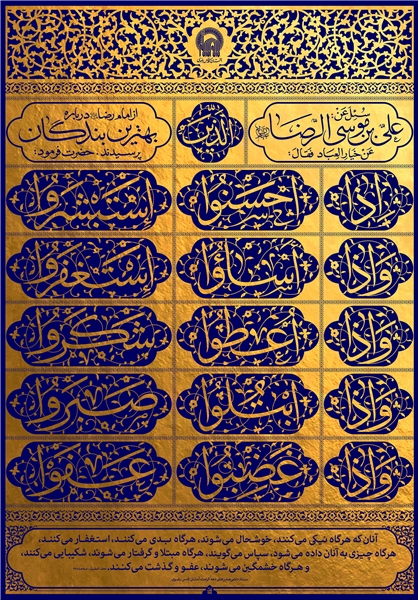 سُئِلَ عَن
علی بن موسی الرضا
عن خیار العباد فقال:
الذین
از امام رضا درباره
بهترین بندگان
پرسیدند؛ حضرت فرمود:
اذا احسنوا استبشروا
واذا اساؤا استغفروا
واذا اعطوا شکروا
واذا ابتلوا صبروا
واذا غضبوا عفوا
آنان که هرگاه نیکی می‌کنند، خوشحال می‌شوند، هرگاه بدی می‌کنند، استغفار می‌کنند،
هرگاه چیزی به آنان داده می‌شود، سپاس می‌گویند، هرگاه مبتلا و گرفتار می‌شوند، شکیبایی می‌کنند،
و هرگاه خشمگین می‌شوند، عفو و گذشت می‌کنند.